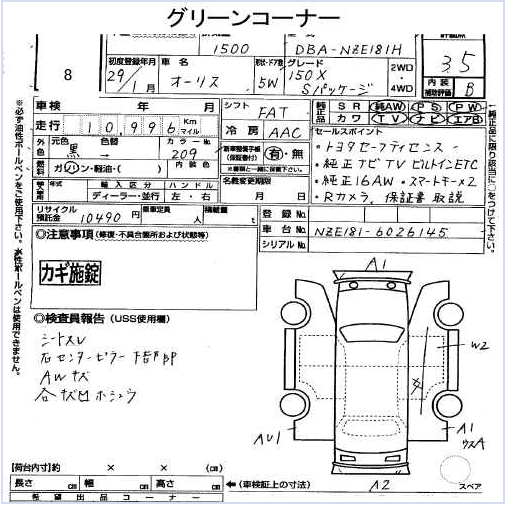 グリーンコーナー
1500
DBA-NZE181H
評価点
8
初度登録年月
29/1月
車名
オーリス
形状・ドア数
5W
グレード
150X
Sパッケージ
2WD
4WD
35
内装
補助評価
B
車検 年 月
シフト
FAT
純正
SR
純AW
PS
PW
カワ
TV
ナビ
エアB
走行
10,996
Km
マイル
冷房
AAC
セールスポイント
・トヨタセーフティセンス
・純正ナビTVビルトインETC
・純正16AW・スマートキー×2
・Rカメラ、保証書 取説
元色
黒
色替
→
カラーNo
209
新車整備手帳
(保証書付)
有・無
※書類と一緒に保管下さい。
燃料
ガソリン・軽油・( )
内装色
名義変更期限
月 日
年式
輸入区分
ハンドル
ディーラー・並行
左・右
リサイクル
預託金
10490
円
乗車定員
人
積載量
t
登録No.
車台No.
NZE181-6026145
シリアルNo.
◎注意事項
(修復・不具合箇所および状態等)
カギ施錠
◎検査員報告 (USS使用欄)
シートスレ
右センターピラー下部BP
AWキズ
各キズ凹ホシュウ
A1
W2
AU1
A1
ウスA
A2
スペア
【荷台内寸】約 × × (cm)
長さ cm
幅 cm
高さ cm
←(車検証上の寸法)
希望出品コーナー
※必ず油性ボールペンをご使用下さい。水性ボールペンは使用できません。